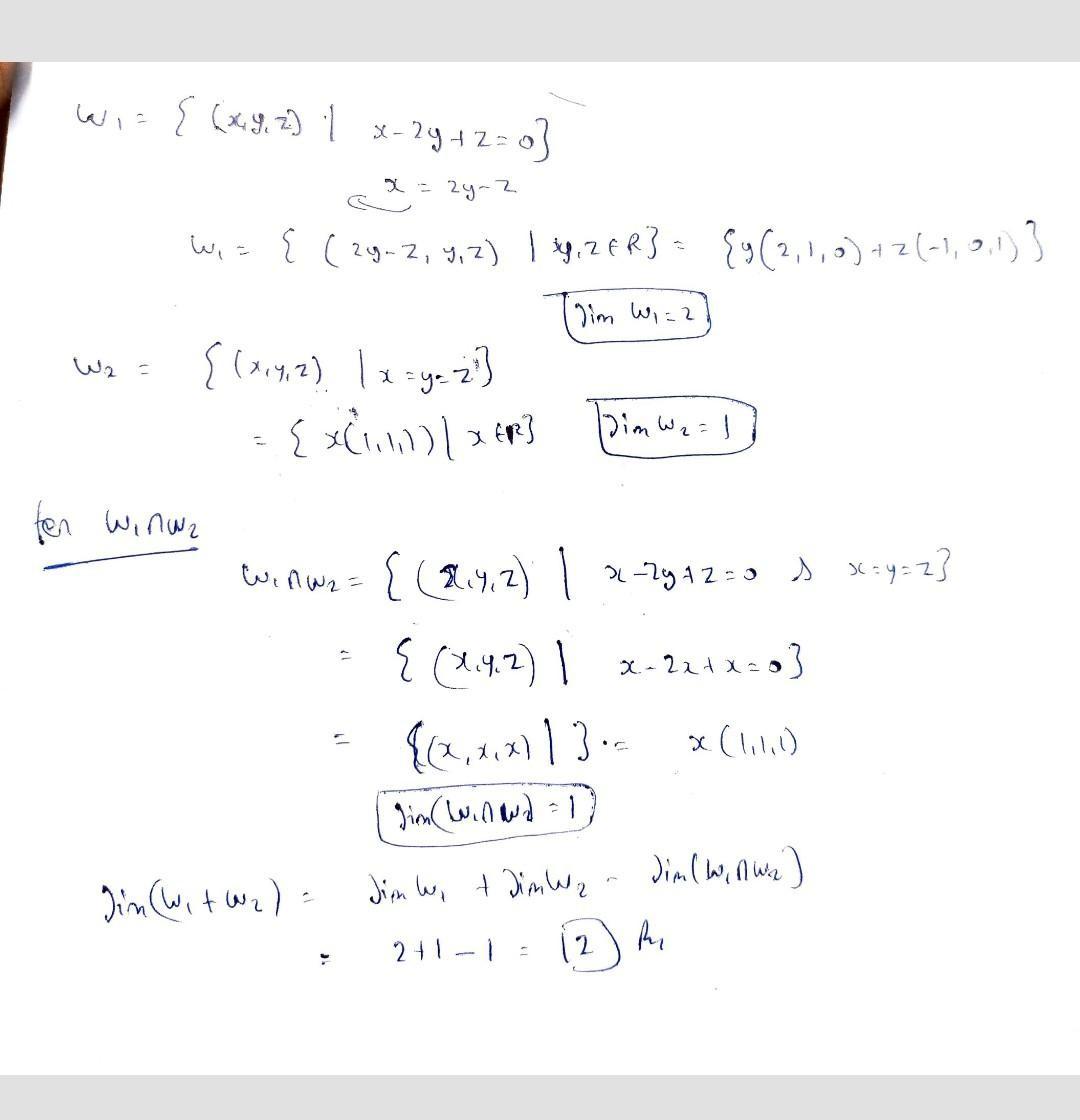 W₁ = { (x,y,z) | x-2y+z=0}
x = 2y-z
W₁ = { (2y-z, y,z) | y,z∈R} = {y(2,1,0)+z(-1,0,1)}
dim W₁=2
W₂ = {(x,y,z) | x=y=z}
= { x(1,1,1) | x∈R} dim W₂=1
for W₁∩W₂
W₁∩W₂ = { (x,y,z) | x-2y+z=0 & x=y=z}
= { (x,y,z) | x-2x+x=0}
= {(x,x,x) | } = x(1,1,1)
dim(W₁∩W₂) = 1
dim(W₁+W₂) = dim W₁ + dim W₂ - dim(W₁∩W₂)
= 2+1-1 = 2